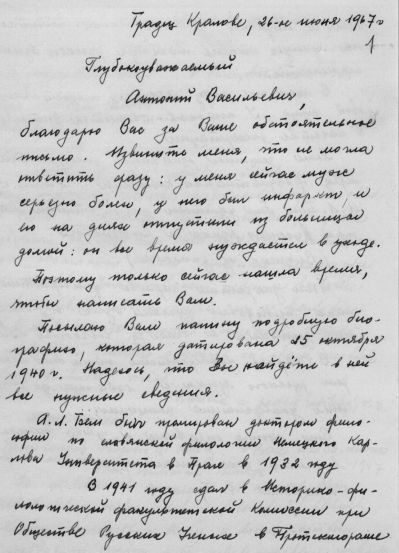 Градец Кралове, 26-ое июня 1967 г
1
Глубокоуважаемый
Антоний Васильевич,
благодарю Вас за Ваше обстоятельное
письмо. Извините меня, что не могла
ответить сразу: у меня сейчас муж
серьезно болен, у него был инфаркт, и
его на днях отпустили из больницы
домой: он все время нуждается в уходе.
Поэтому только сейчас нашла время,
чтобы написать Вам.
Посылаю Вам папину подробную био-
графию, которая датирована 25 октября
1940 г. Надеюсь, что Вы найдёте в ней
все нужные сведения.
А. Л. Бем был промирован доктором фило-
софии по славянской филологии Немецкого Кар-
лова Университета в Праге в 1932 году
В 1941 году сдал в Историко-фи-
лологической факультетской Комиссии при
Обществе Русских Ученых в Протекторате